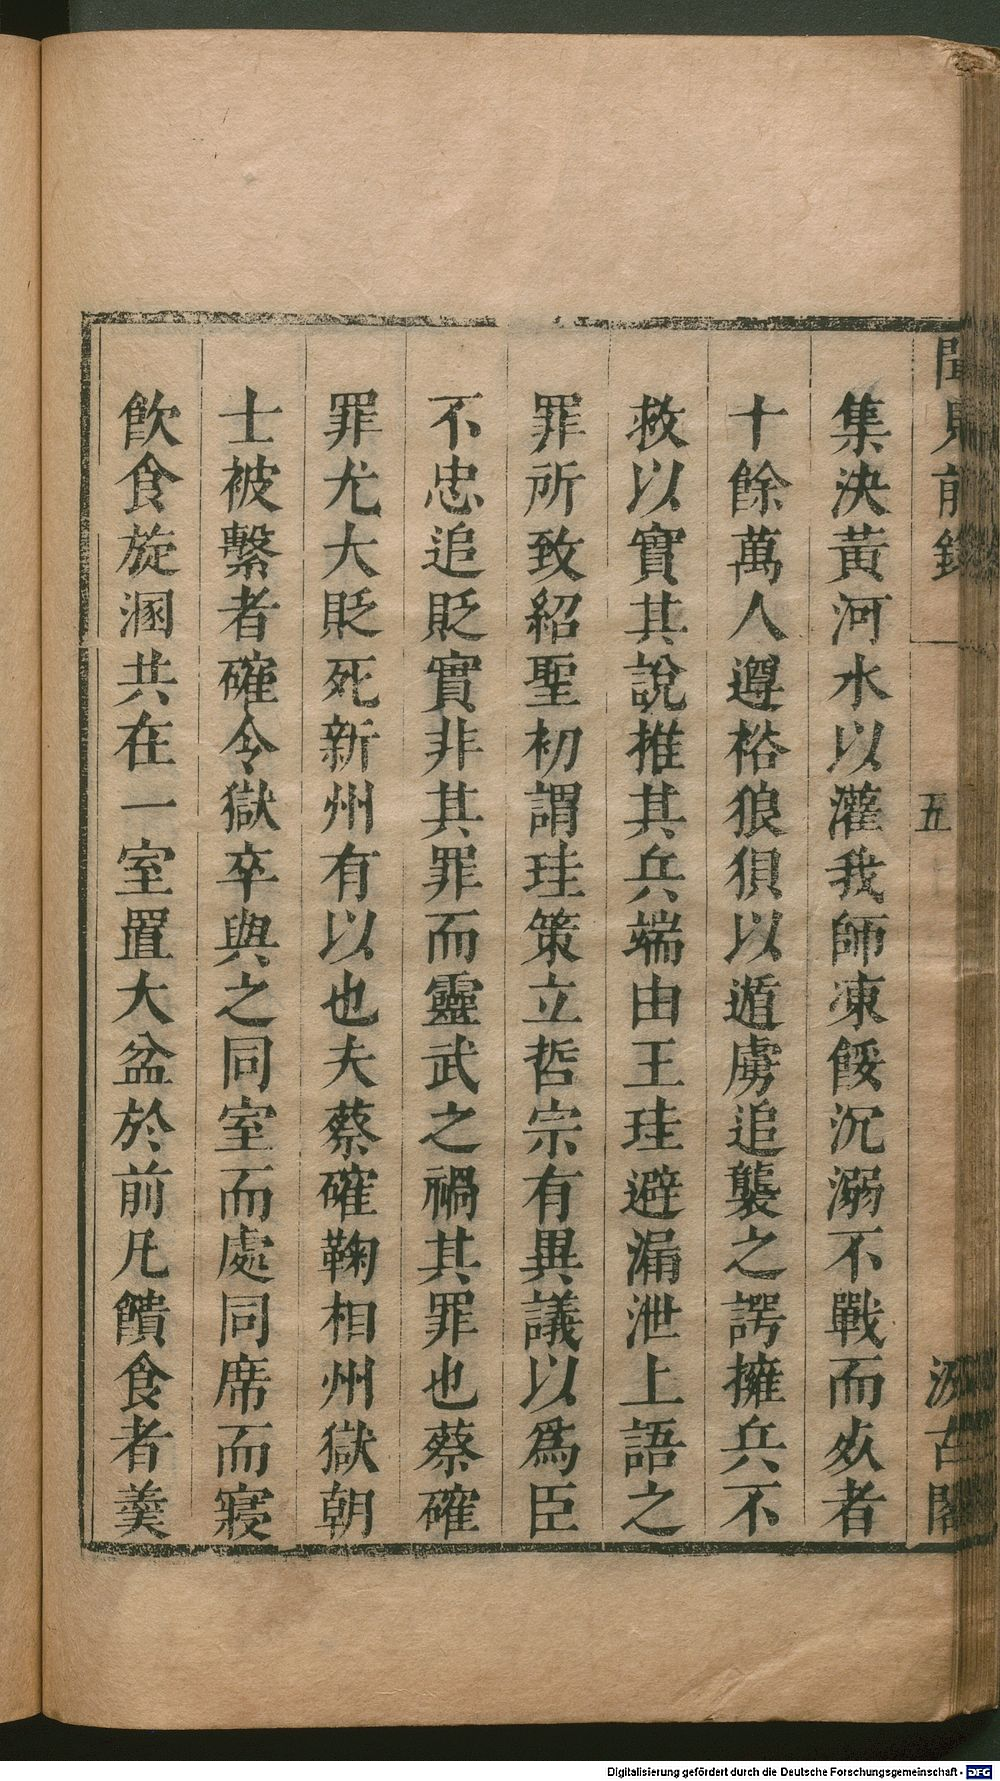 聞見前錄
五
汲古閣
集決黃河水以灌我師凍餒沉溺不戰而死者
十餘萬人遵裕狼狽以遁虜追襲之諤擁兵不
救以實其說推其兵端由王珪避漏泄上語之
罪所致紹聖初謂珪策立哲宗有異議以爲臣
不忠追貶實非其罪而靈武之禍其罪也蔡確
罪尤大貶死新州有以也夫蔡確鞠相州獄朝
士被繫者確令獄卒與之同室而處同席而寢
飲食旋溷共在一室置大盆於前凡饋食者羹
Digitalisierung gefördert durch die Deutsche Forschungsgemeinschaft - DFG